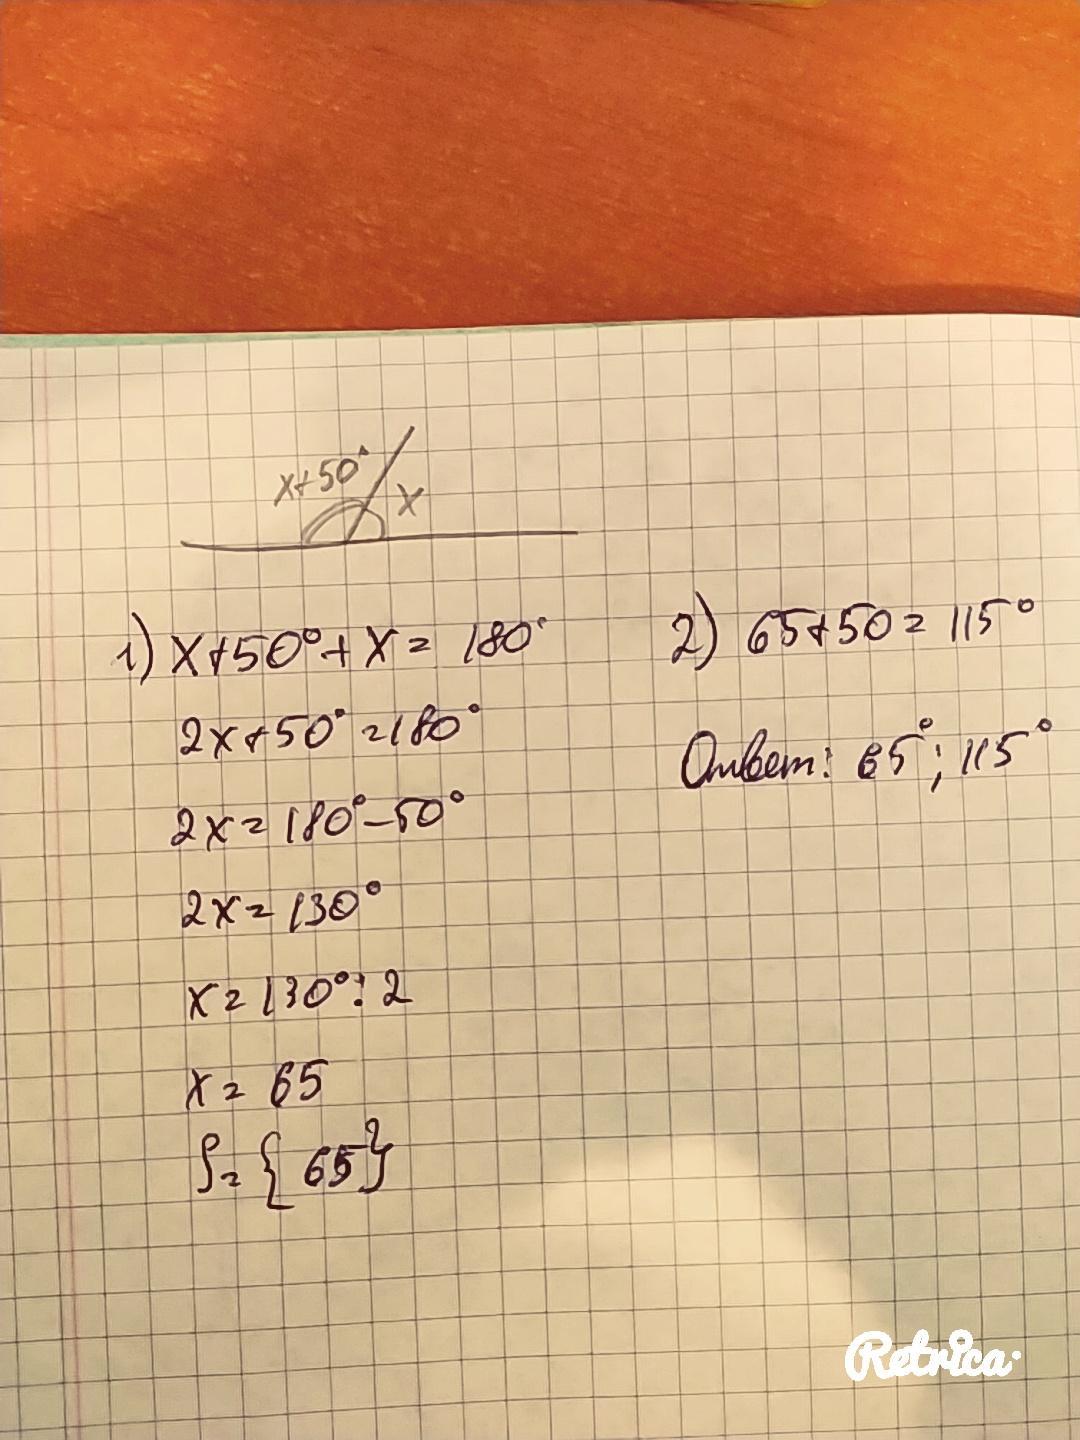 x+50°
x
1) x+50°+x= 180°
2x+50°=180°
2x=180°-50°
2x=130°
x=130°:2
x=65
S={65}
2) 65+50=115°
Ответ: 65°; 115°
Retrica